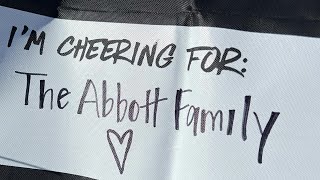 I'M CHEERING FOR:
The Abbott Family